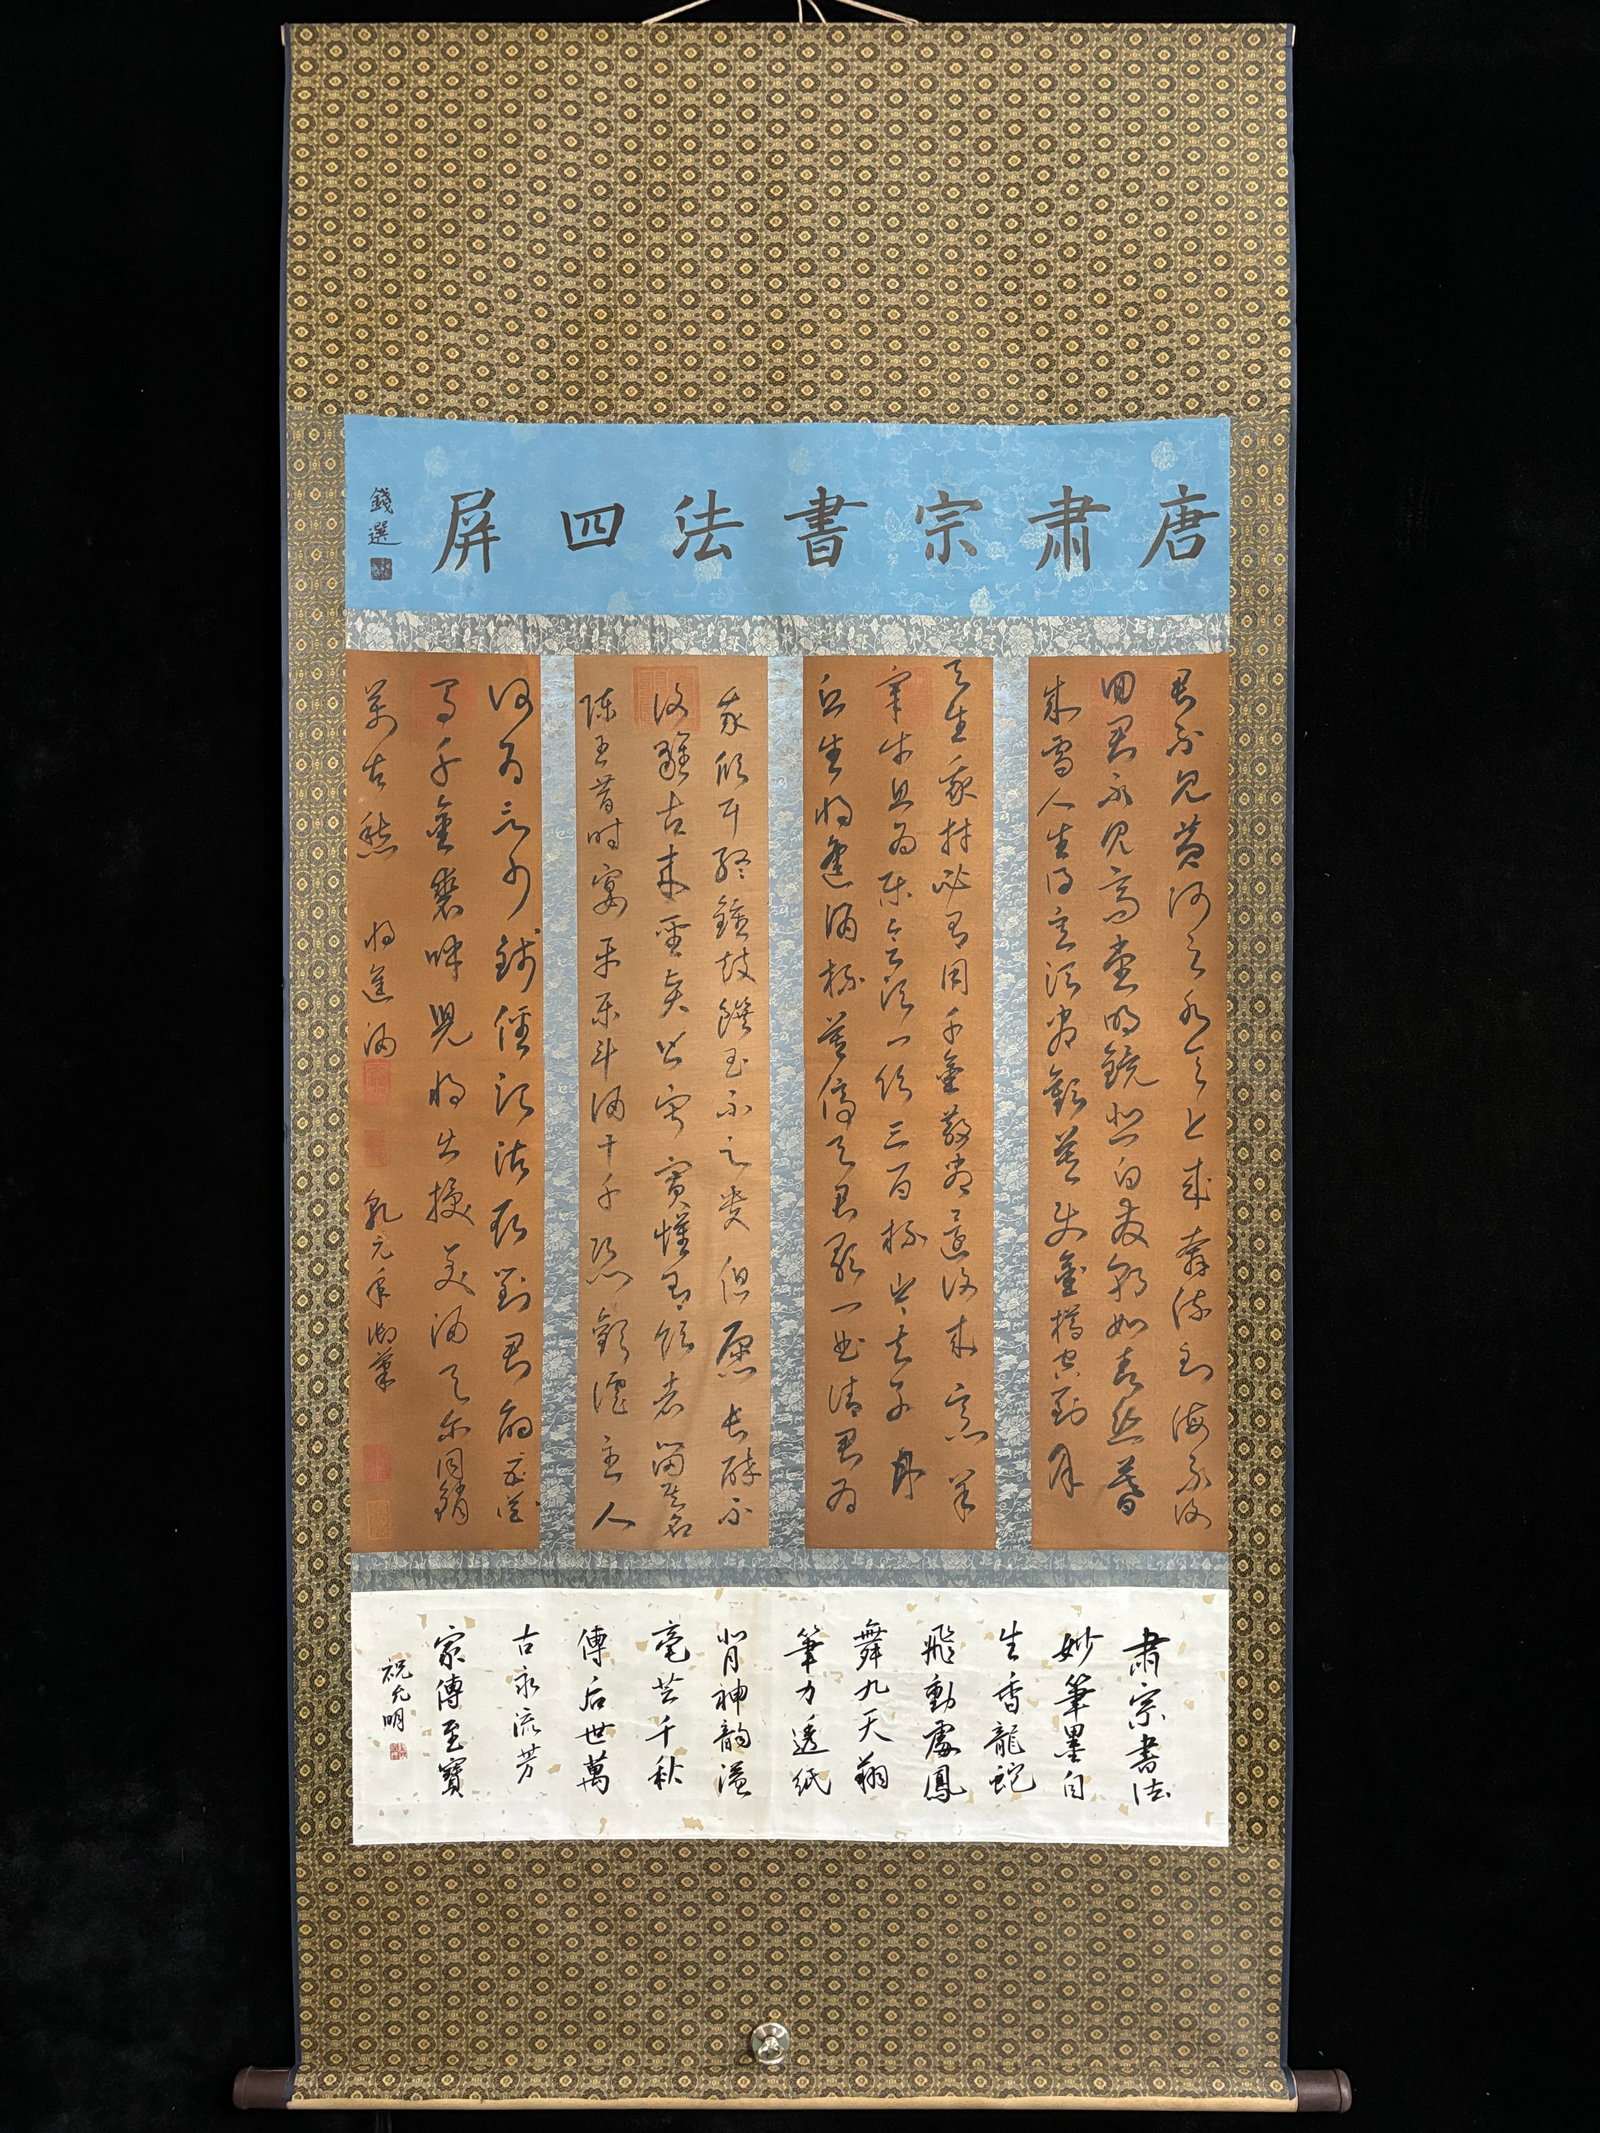 唐肅宗書法四屏
錢選
君不見黃河之水天上來奔流到海不復
回君不見高堂明鏡悲白髮朝如青絲暮
成雪人生得意須盡歡莫使金樽空對月
天生我材必有用千金散盡還復來烹羊
宰牛且為樂會須一飲三百杯岑夫子丹
丘生將進酒杯莫停與君歌一曲請君為
我傾耳聽鐘鼓饌玉不足貴但願長醉不
復醒古來聖賢皆寂寞惟有飲者留其名
陳王昔時宴平樂斗酒十千恣歡謔主人
何為言少錢徑須沽取對君酌五花
馬千金裘呼兒將出換美酒與爾同銷
萬古愁 將進酒 乾元年御筆
肅宗書法
妙筆墨自
生香龍蛇
飛動處鳳
舞九天翔
筆力透紙
背神韵溢
毫芒千秋
傳后世萬
古永流芳
家傳至寶
祝允明